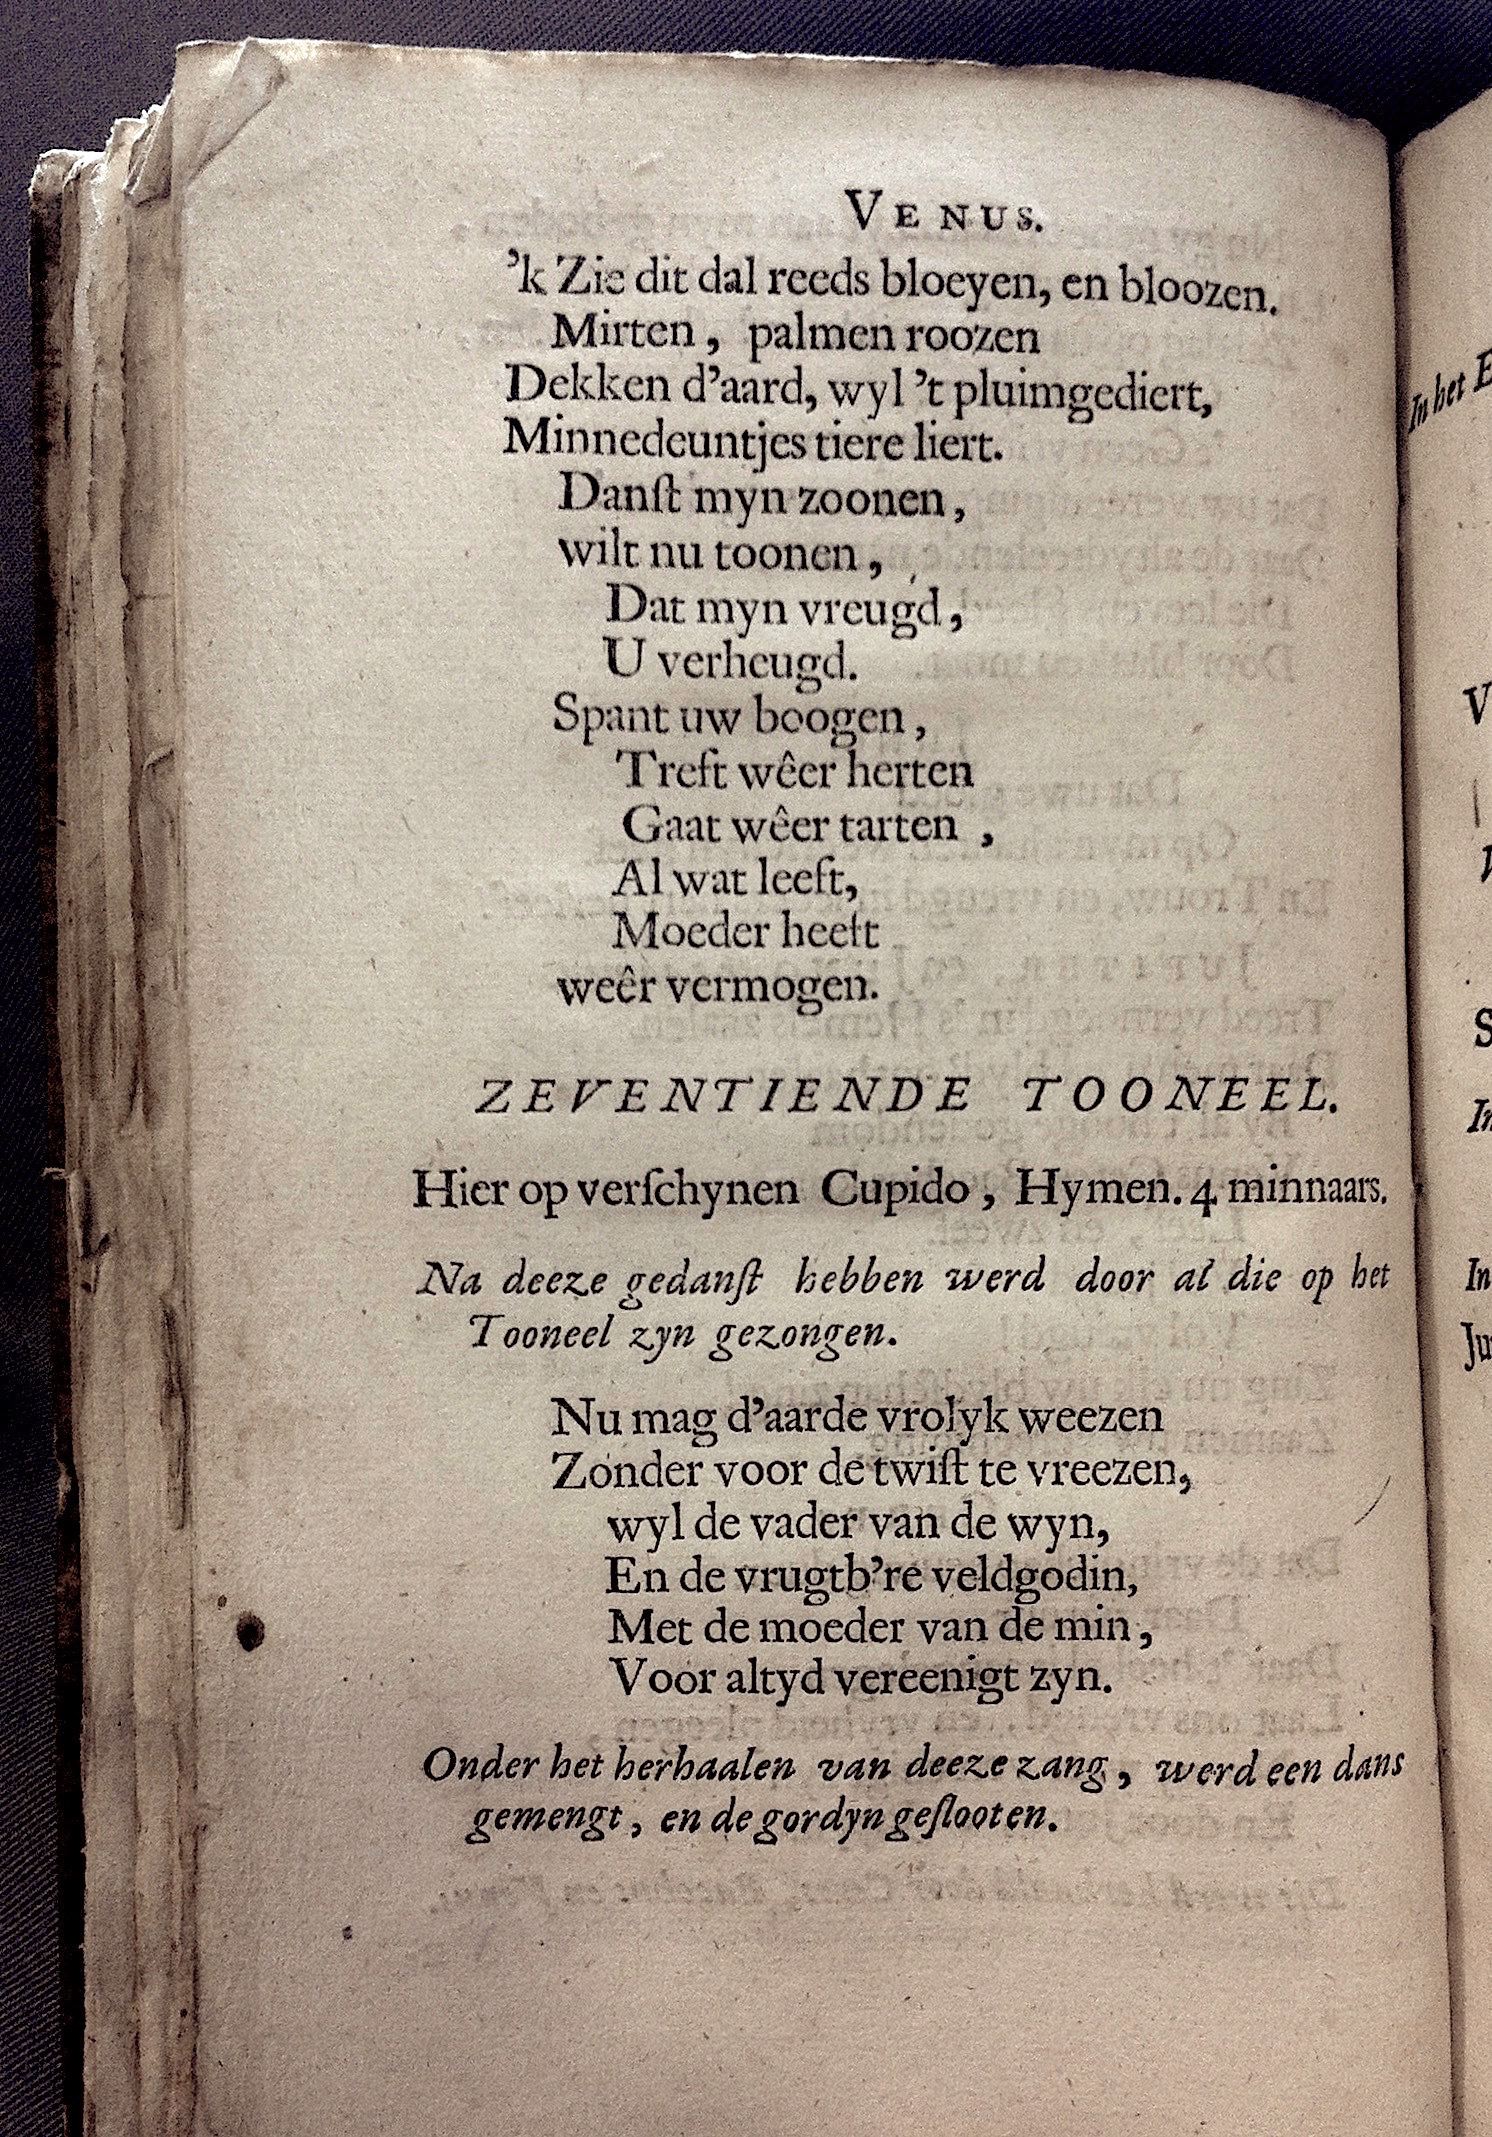 VENUS.
'k Zie dit dal reeds bloeyen, en bloozen.
Mirten, palmen roozen
Dekken d'aard, wyl 't pluimgediert,
Minnedeuntjes tiere liert.
Danſt myn zoonen,
wilt nu toonen,
Dat myn vreugd,
U verheugd.
Spant uw boogen,
Treft wêer herten
Gaat wêer tarten ,
Al wat leeft,
Moeder heeft
weêr vermogen.
ZEVENTIENDE TOONEEL.
Hier op verſchynen Cupido, Hymen. 4 minnaars.
Na deeze gedanſt hebben werd door al die op het
Tooneel zyn gezongen.
Nu mag d'aarde vrolyk weezen
Zonder voor de twiſt te vreezen,
wyl de vader van de wyn,
En de vrugtb're veldgodin,
Met de moeder van de min,
Voor altyd vereenigt zyn.
Onder het herhaalen van deeze zang, werd een dans
gemengt, en de gordyn geſlooten.
In het